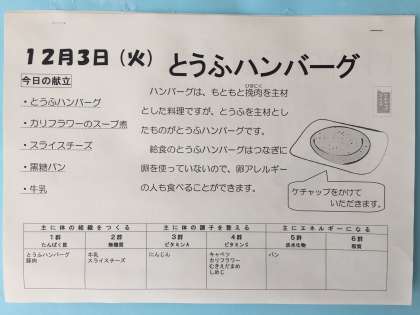 12月3日（火） とうふハンバーグ
今日の献立
・とうふハンバーグ
・カリフラワーのスープ煮
・スライスチーズ
・黒糖パン
・牛乳
ハンバーグは、もともと挽肉を主材
とした料理ですが、とうふを主材とし
たものがとうふハンバーグです。
給食のとうふハンバーグはつなぎに
卵を使っていないので、卵アレルギー
の人も食べることができます。
ケチャップをかけて
いただきます。
主に体の組織をつくる 主に体の調子を整える 主にエネルギーになる
1群 2群 3群 4群 5群 6群
たんぱく質 無機質 ビタミンA ビタミンC 炭水化物 脂質
とうふハンバーグ 牛乳 にんじん キャベツ パン
豚肉 スライスチーズ カリフラワー
むきえだまめ
しめじ